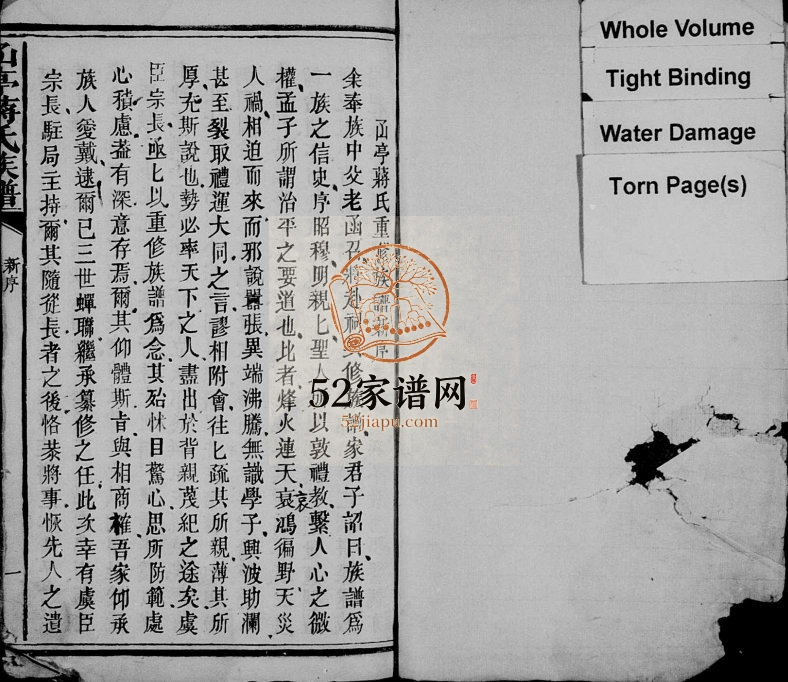 山亭蔣氏重修族譜新序
余奉族中父老函召赴祠修譜家君子詔曰族譜爲
一族之信史序昭穆明親匕聖人所以敦禮教繫人心之微
權孟子所謂治平之要道也比者烽火蓮天哀鴻徧野天災
哀
人禍相迫而來而邪說囂張異端沸騰無識學子興波助瀾
甚至裂取禮運大同之言謬相附會往匕疏其所親薄其所
厚充斯說也勢必率天下之人盡出於背親蔑紀之途矣虞
臣宗長亟匕以重修族譜爲念其殆怵目驚心思所防範處
心積慮葢有深意存焉爾其仰體斯旨與相商榷吾家仰承
族人愛戴逮爾已三世蟬聯繼承纂修之任此次幸有虞臣
宗長駐局主持爾其隨從長者之後恪恭將事恢先人之遺
山亭蔣氏族譜
新序
一
Whole Volume
Tight Binding
Water Damage
Torn Page(s)
52家谱网
52jiapu.com